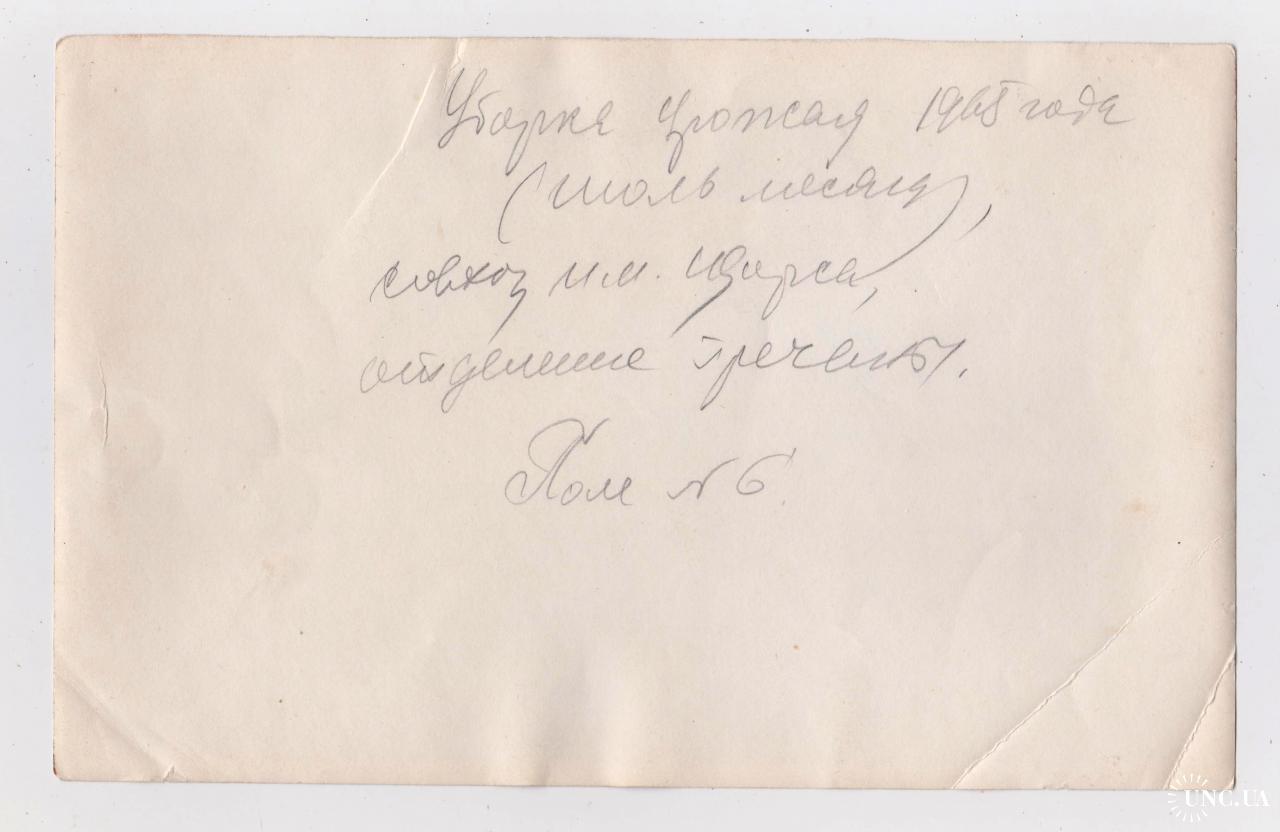 Уборка урожая 1965 года
(июль месяц),
совхоз им. Щорса,
отделение Гречаны.
Поле № 6.
UNC.UA